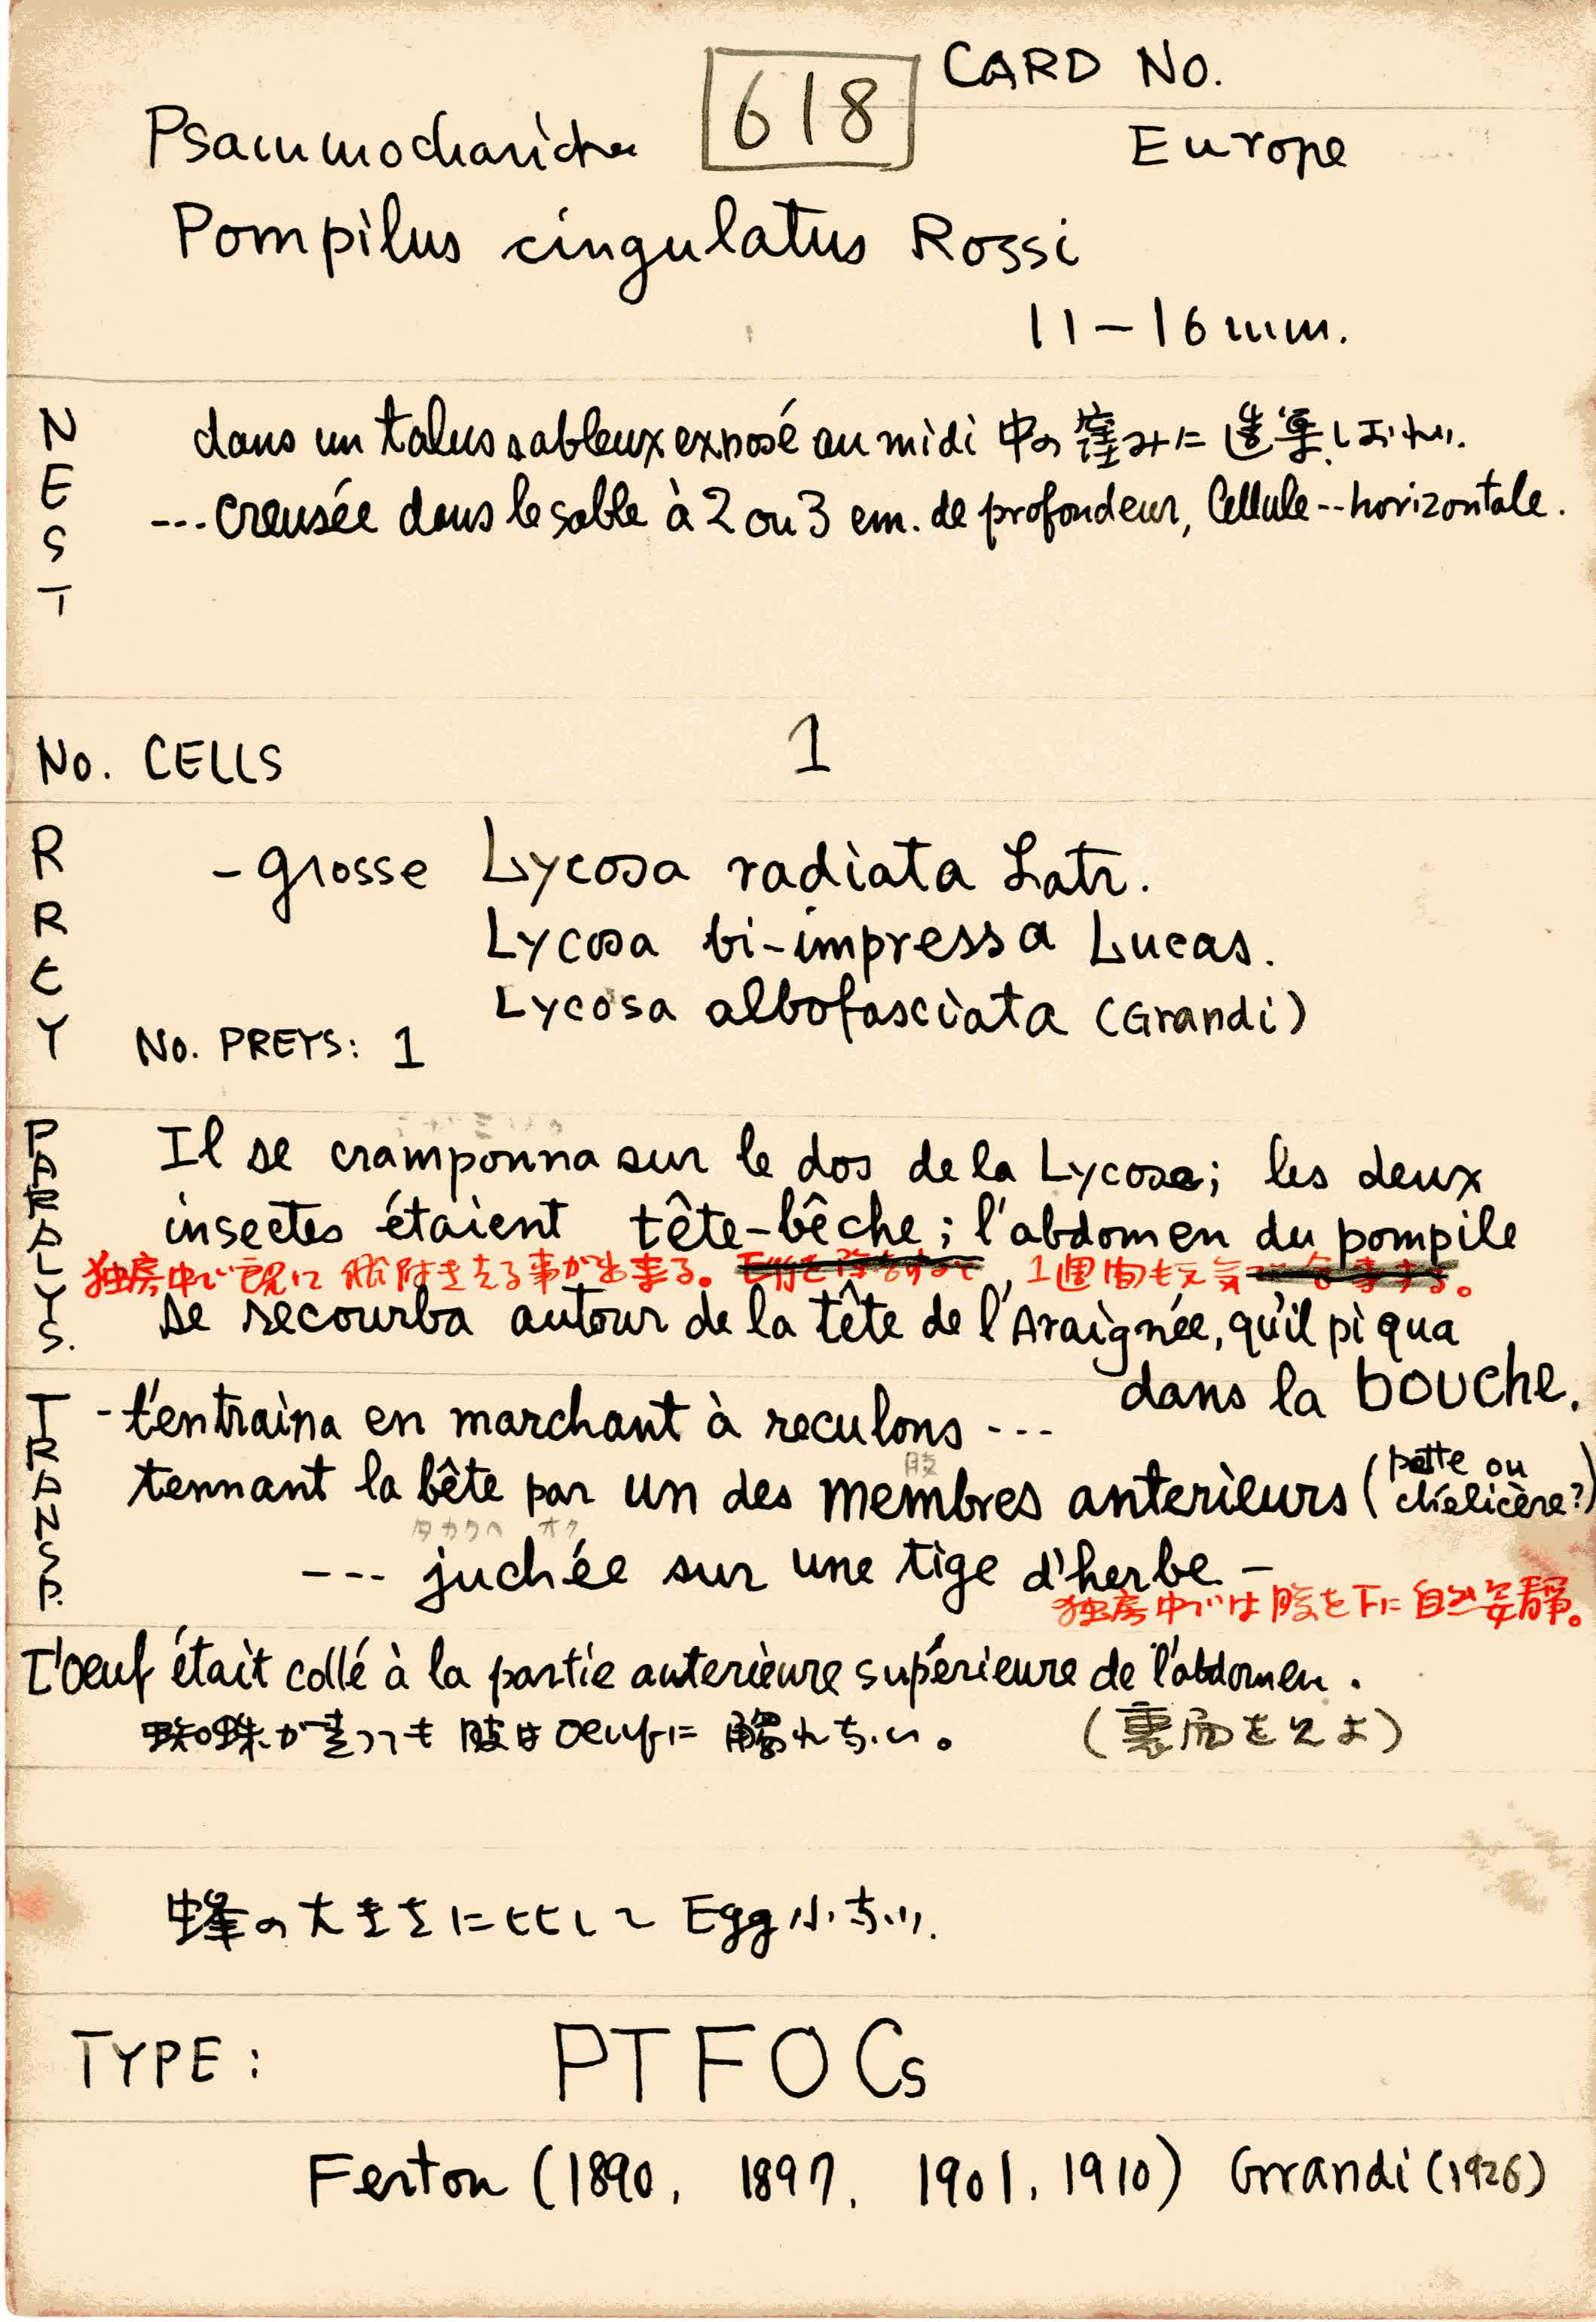 618 CARD NO.
Psammocharidae Europe
Pompilus cingulatus Rossi
11-16 mm.
NEST
dans un talus sableux exposé au midi 中の窪みに造巣しおれり.
--- creusée dans le sable à 2 ou 3 cm. de profondeur, Cellule -- horizontale.
No. CELLS 1
RREY
- grosse Lycosa radiata Latr.
Lycosa bi-impressa Lucas.
Lycosa albofasciata (Grandi)
No. PREYS: 1
PARALYS.
Il se cramponna sur le dos de la Lycose; les deux
insectes étaient tête-bêche; l'abdomen du pompile
独房中で既に 起き上る事が出来る。 1週間も元気
se recourba autour de la tête de l'Araignée, qu'il piqua
dans la bouche.
TRANSP.
- l'entraina en marchant à reculons ---
肢
tennant la bête par un des membres anterieurs (patte ou chelicère?)
タカクヘ オク
--- juchée sur une tige d'herbe -
独房中では腹を下に自然姿静。
L'oeuf était collé à la partie anterieure supérieure de l'abdomen.
蜘蛛が走っても肢はoeufに触れない。 (裏面を見よ)
蜂の大きさに比して Egg 小さい.
TYPE: PTFOCs
Ferton (1890, 1897, 1901, 1910) Grandi (1926)